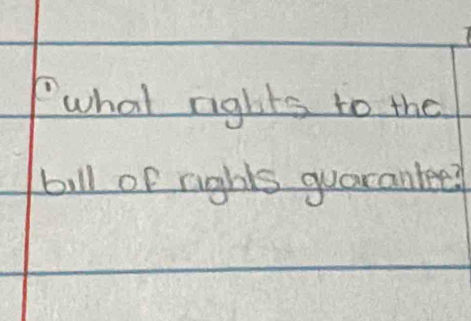 ① what rights to the
bill of rights guarantee?